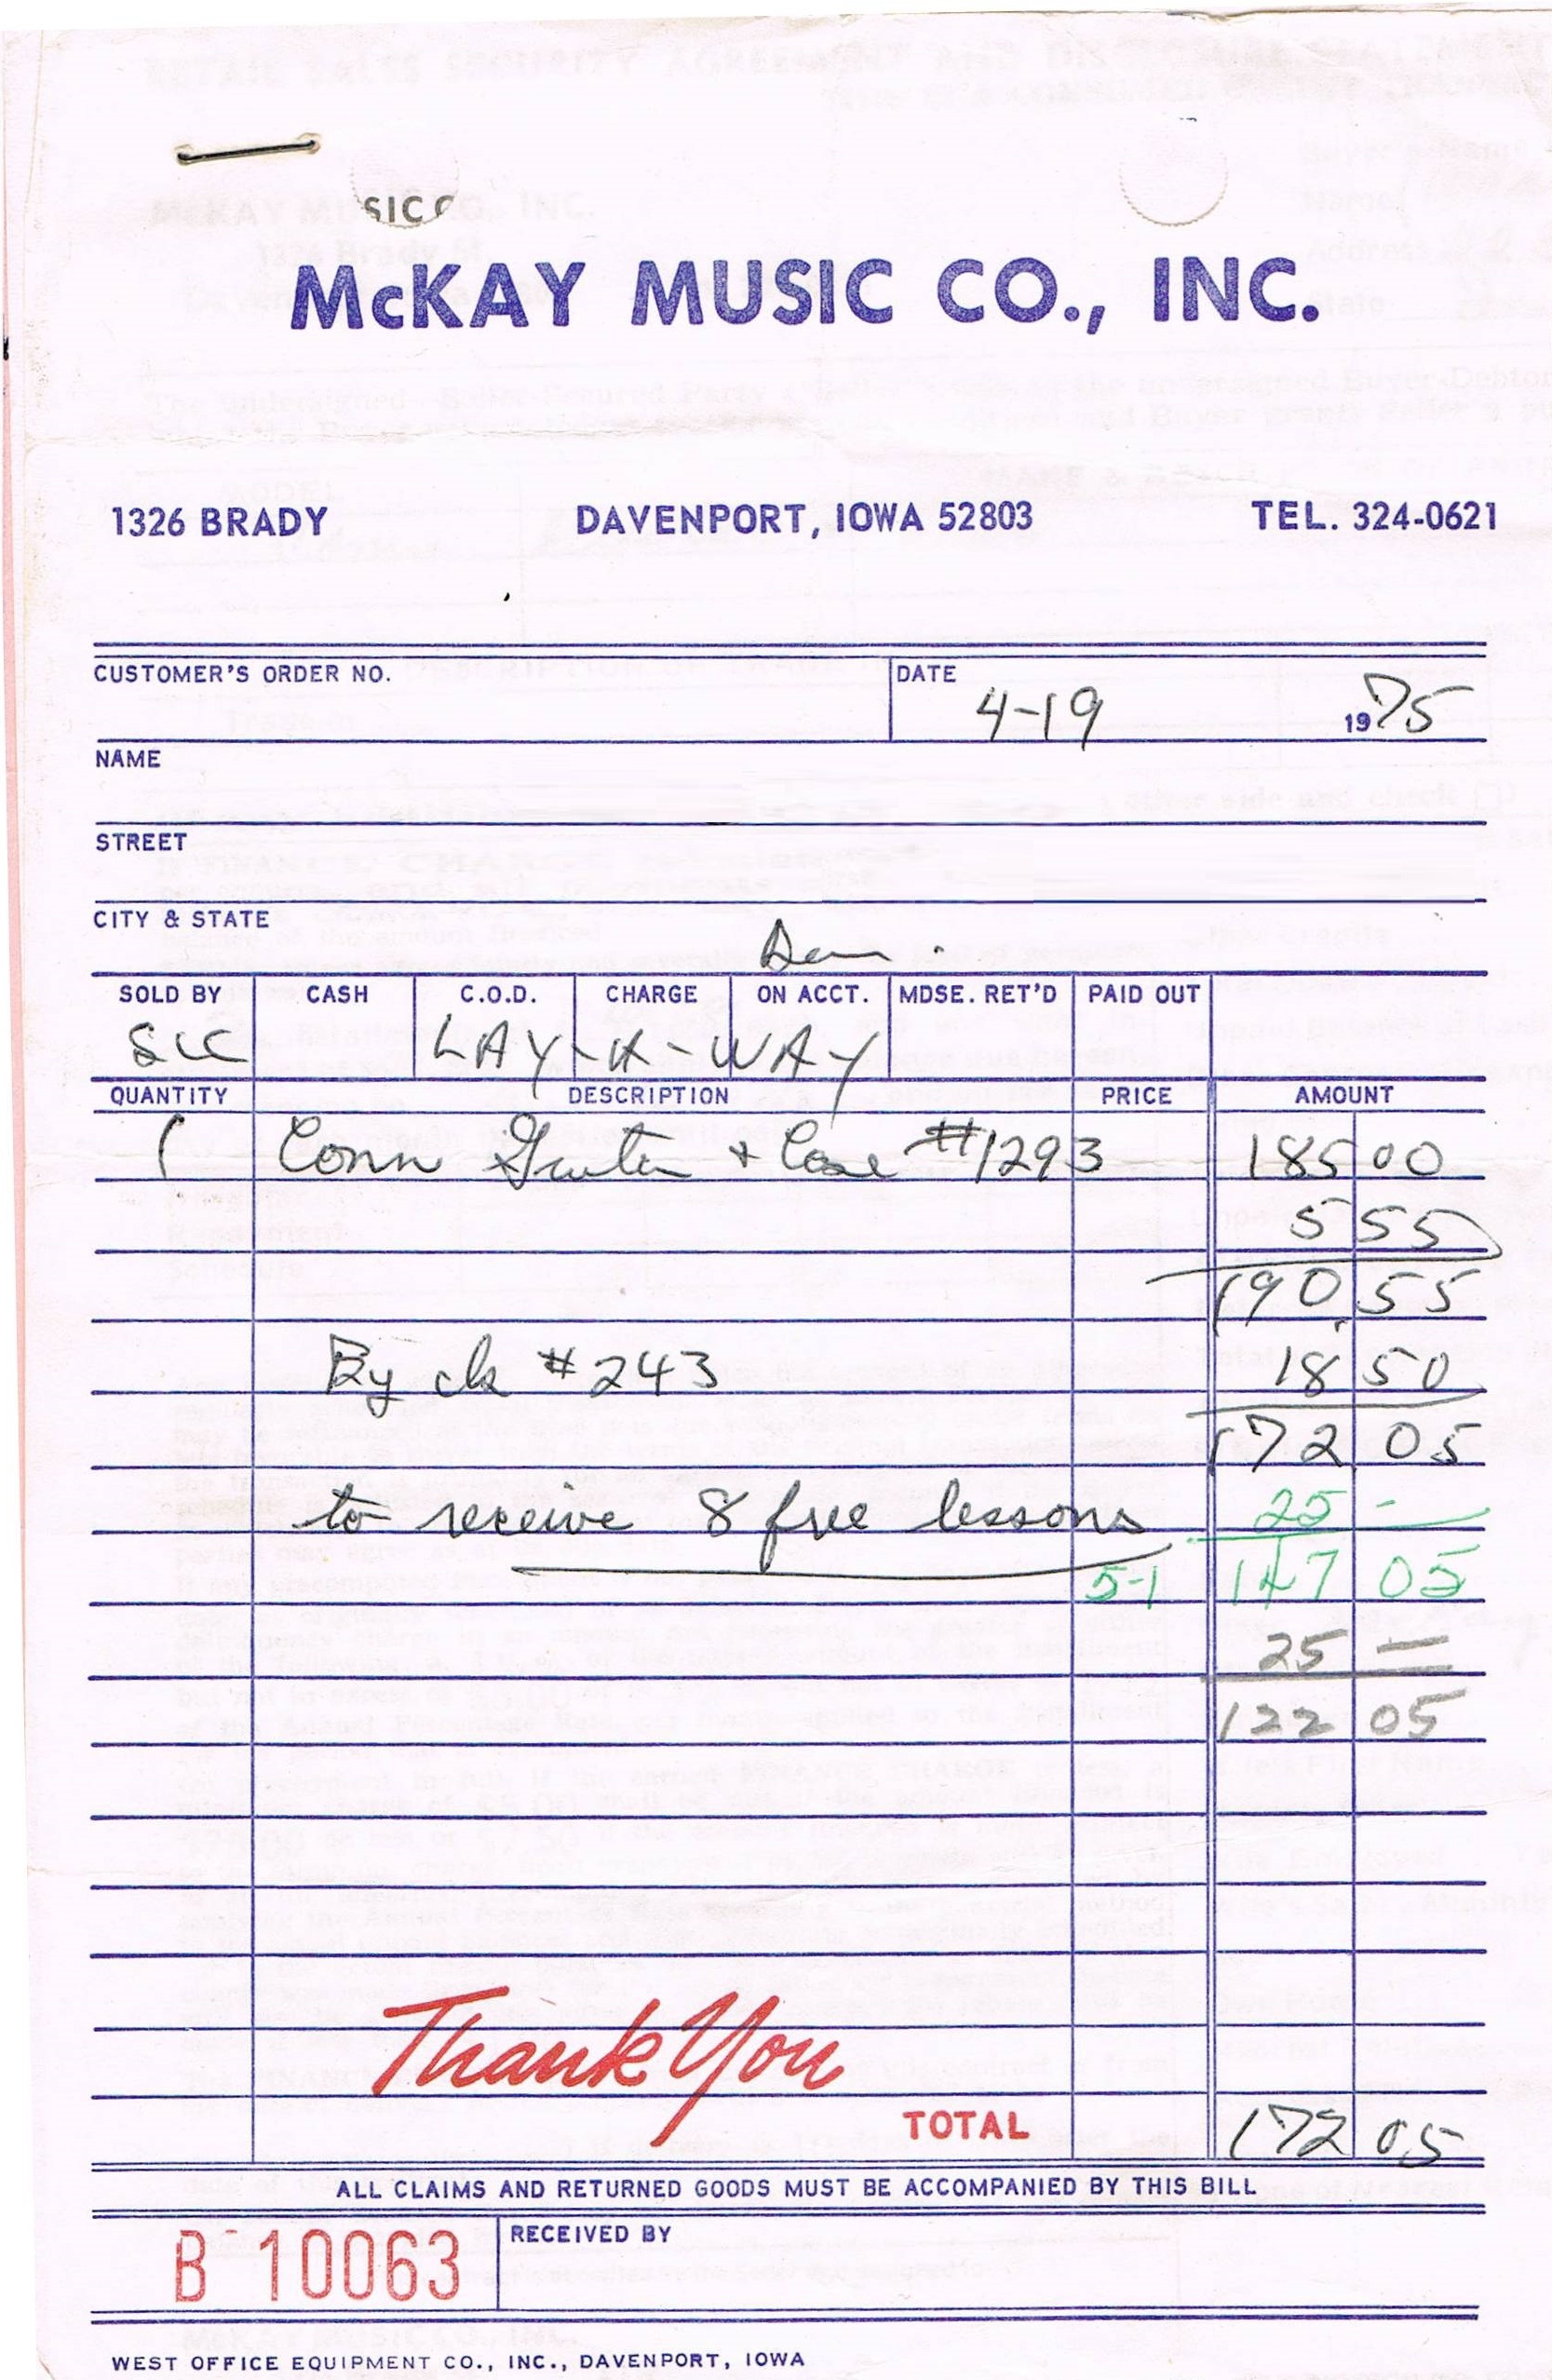 SIC C
McKAY MUSIC CO., INC.
1326 BRADY DAVENPORT, IOWA 52803 TEL. 324-0621
CUSTOMER'S ORDER NO. DATE 4-19 1975
NAME
STREET
CITY & STATE
SOLD BY CASH C.O.D. CHARGE ON ACCT. MDSE. RET'D PAID OUT
LAY-A-WAY
QUANTITY DESCRIPTION PRICE AMOUNT
1 Conn Guitar + Case #1293 185 00
5 55
190 55
By ck #243 18 50
172 05
to receive 8 free lessons 25 -
5-1 147 05
25 —
122 05
Thank You
TOTAL 172 05
ALL CLAIMS AND RETURNED GOODS MUST BE ACCOMPANIED BY THIS BILL
B 10063 RECEIVED BY
WEST OFFICE EQUIPMENT CO., INC., DAVENPORT, IOWA